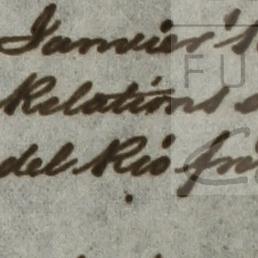 Janvier's
Relations
del Rio